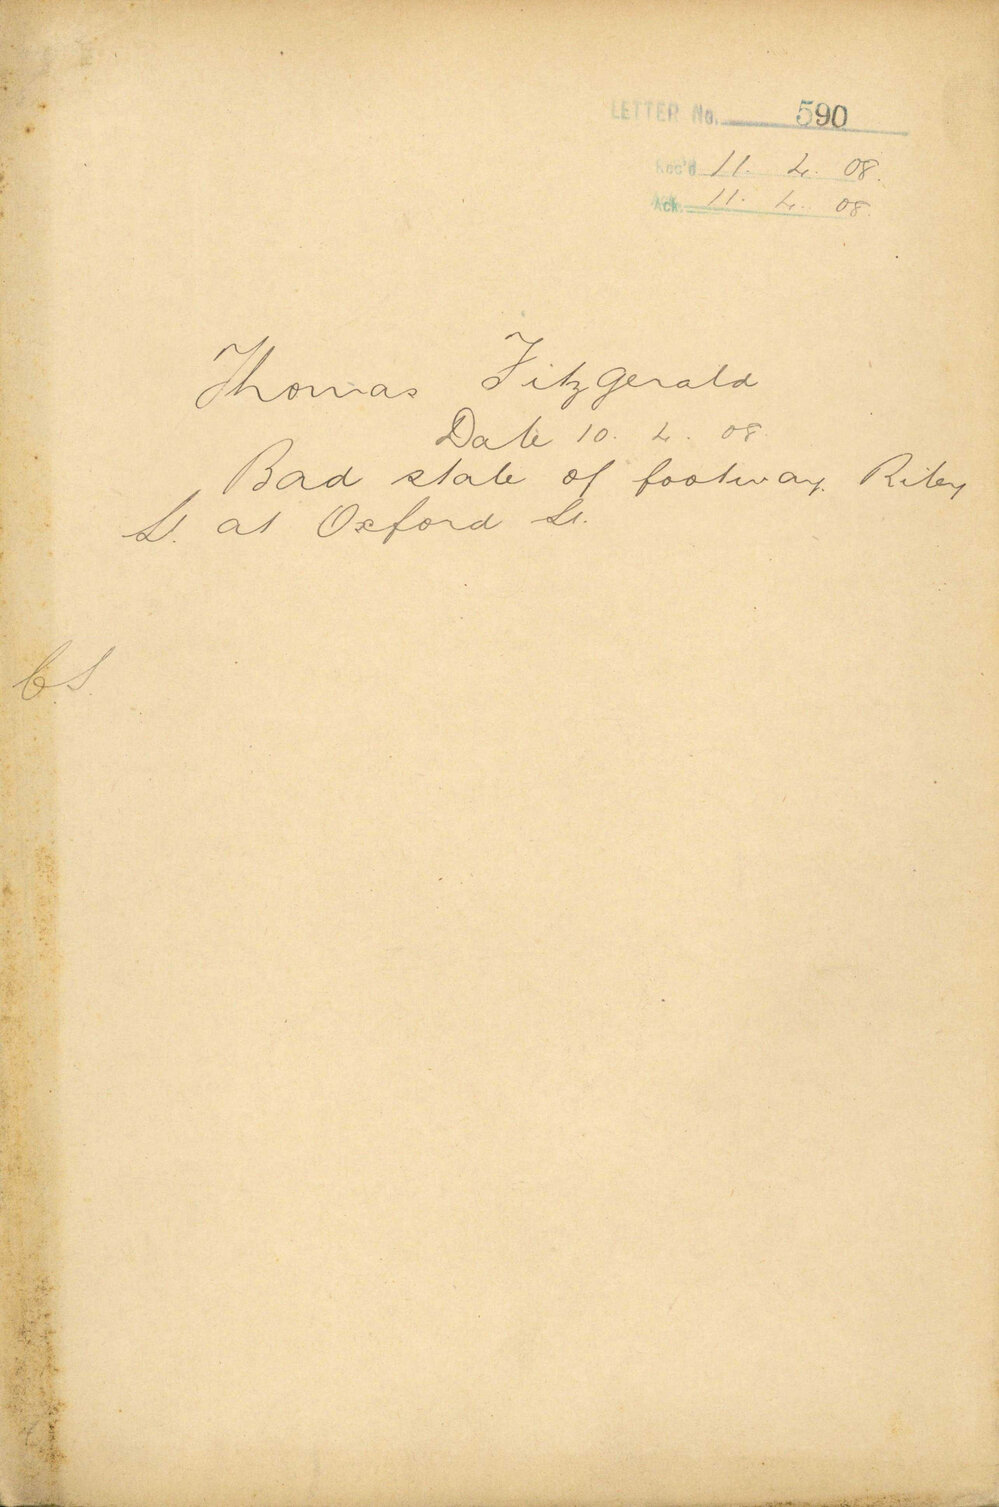 LETTER No. 590
Rec'd 11. 4. 08.
Ack. 11. 4. 08.
Thomas Fitzgerald
Date 10. 4. 08.
Bad state of footway. Riley
St. at Oxford St.
CS.